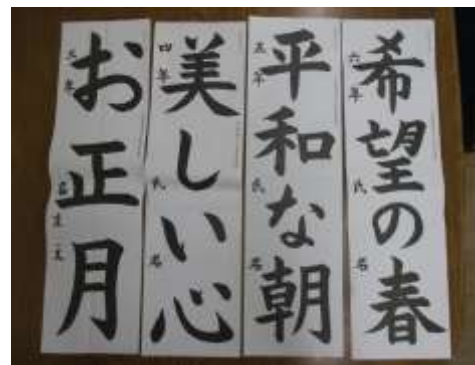 希望の春
六年 氏名
平和な朝
五年 氏名
美しい心
四年 氏名
お正月
三年